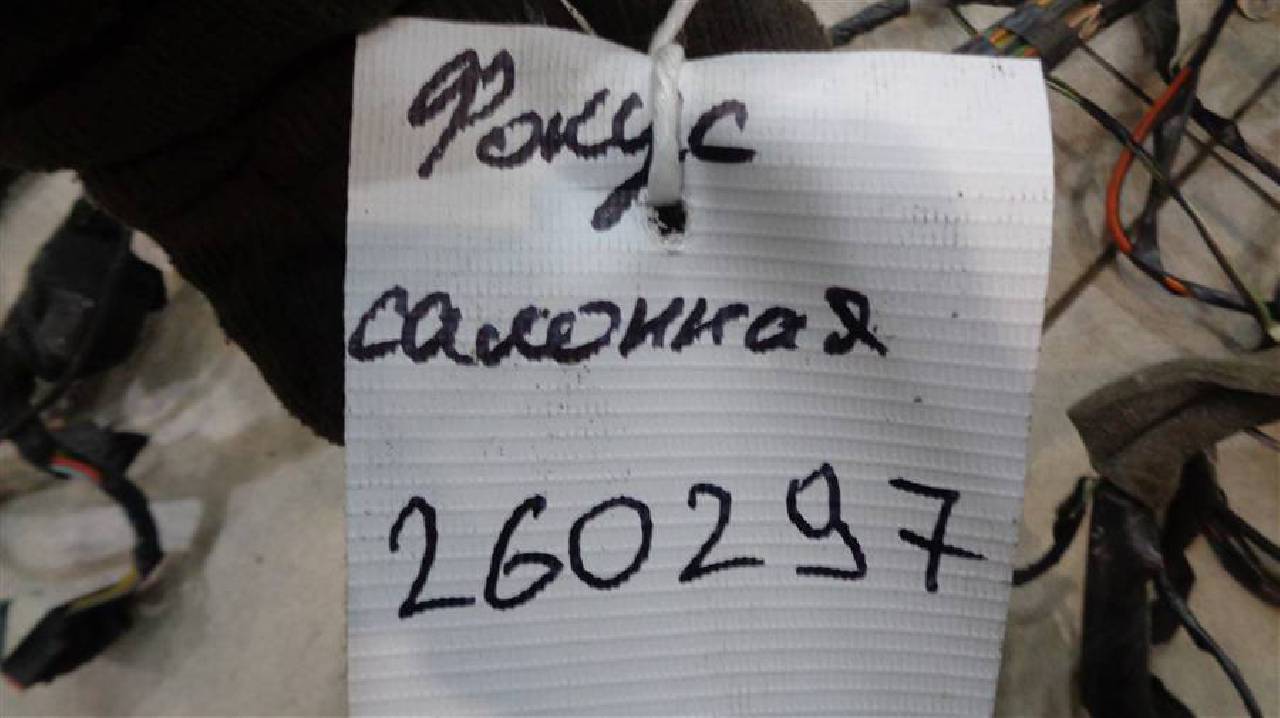 Фокус
салонная
260297